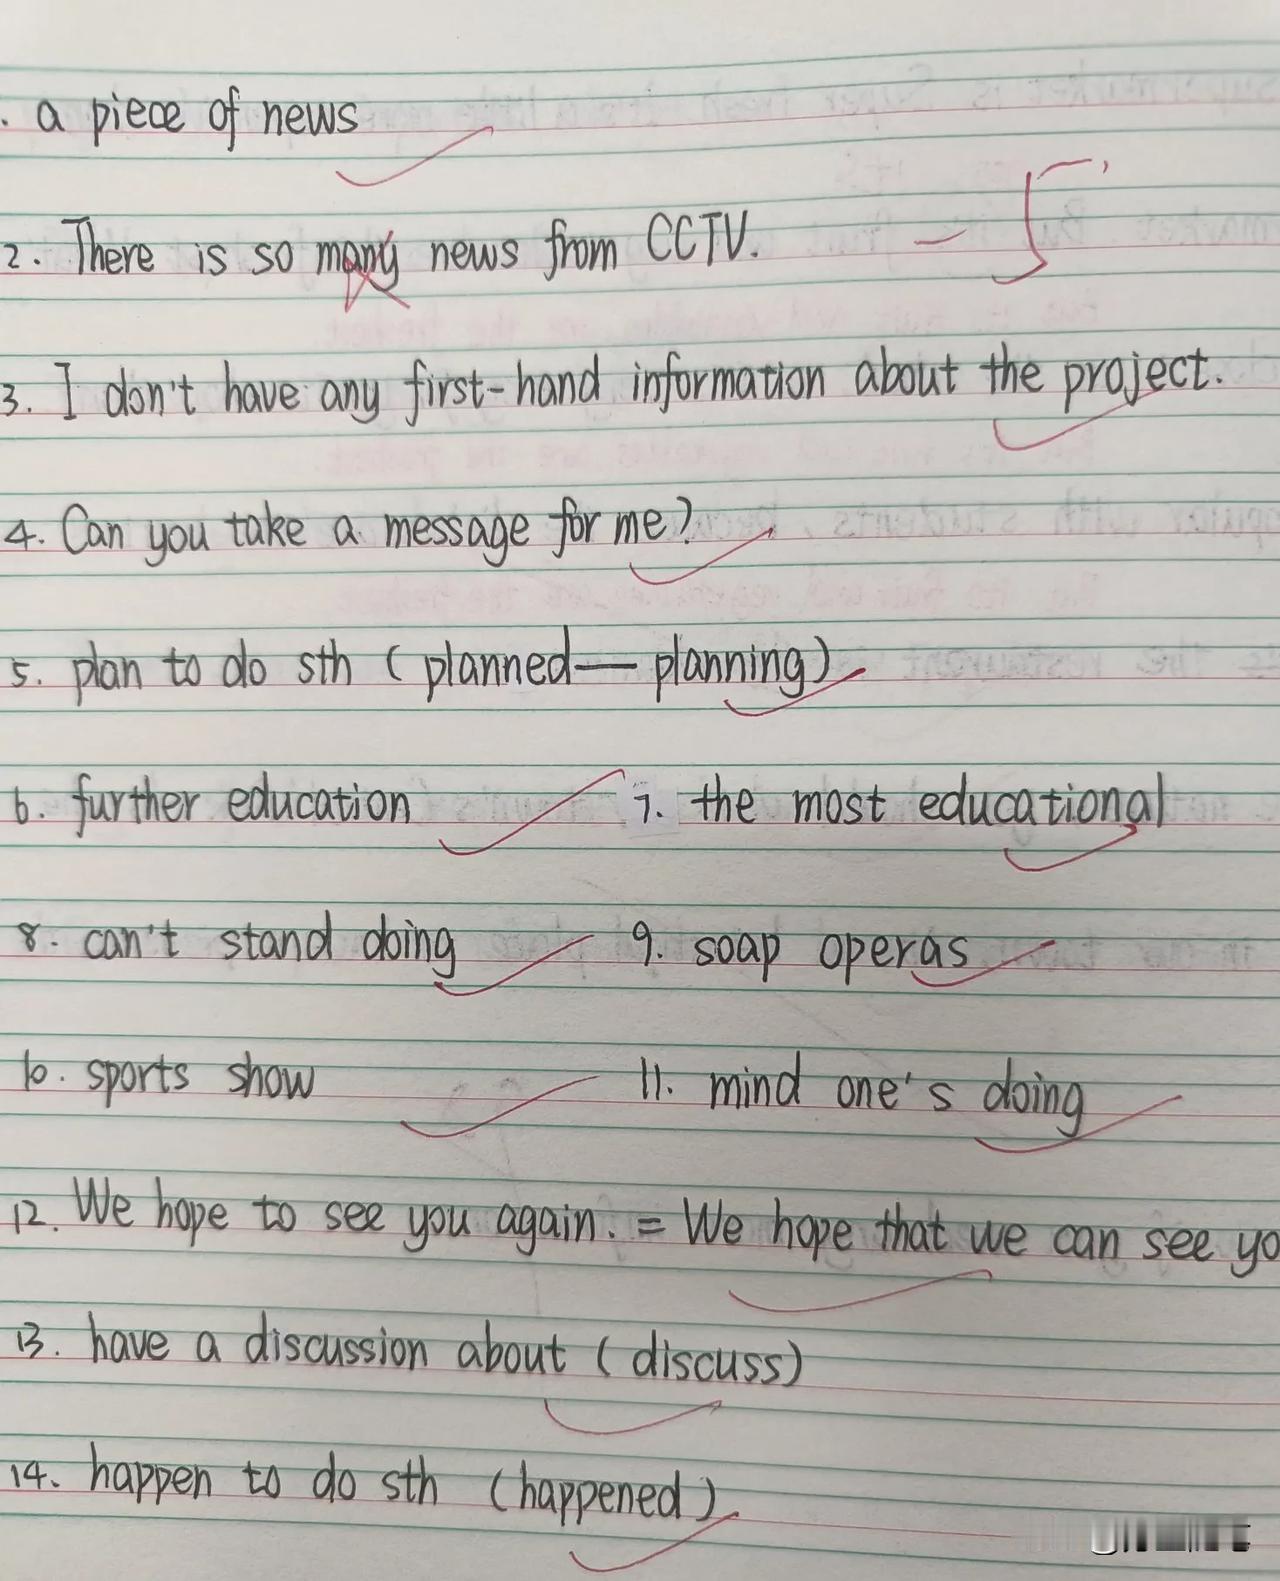 . a piece of news
2. There is so many news from CCTV. -5
3. I don't have any first-hand information about the project.
4. Can you take a message for me?
5. plan to do sth (planned— planning)
6. further education 7. the most educational
8. can't stand doing 9. soap operas
10. sports show 11. mind one's doing
12. We hope to see you again. = We hope that we can see yo
13. have a discussion about (discuss)
14. happen to do sth (happened)